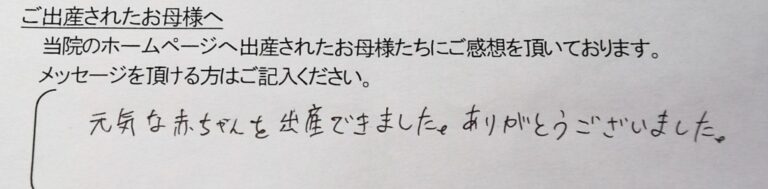 ご出産されたお母様へ
当院のホームページへ出産されたお母様たちにご感想を頂いております。
メッセージを頂ける方はご記入ください。
元気な赤ちゃんを出産できました。ありがとうございました。